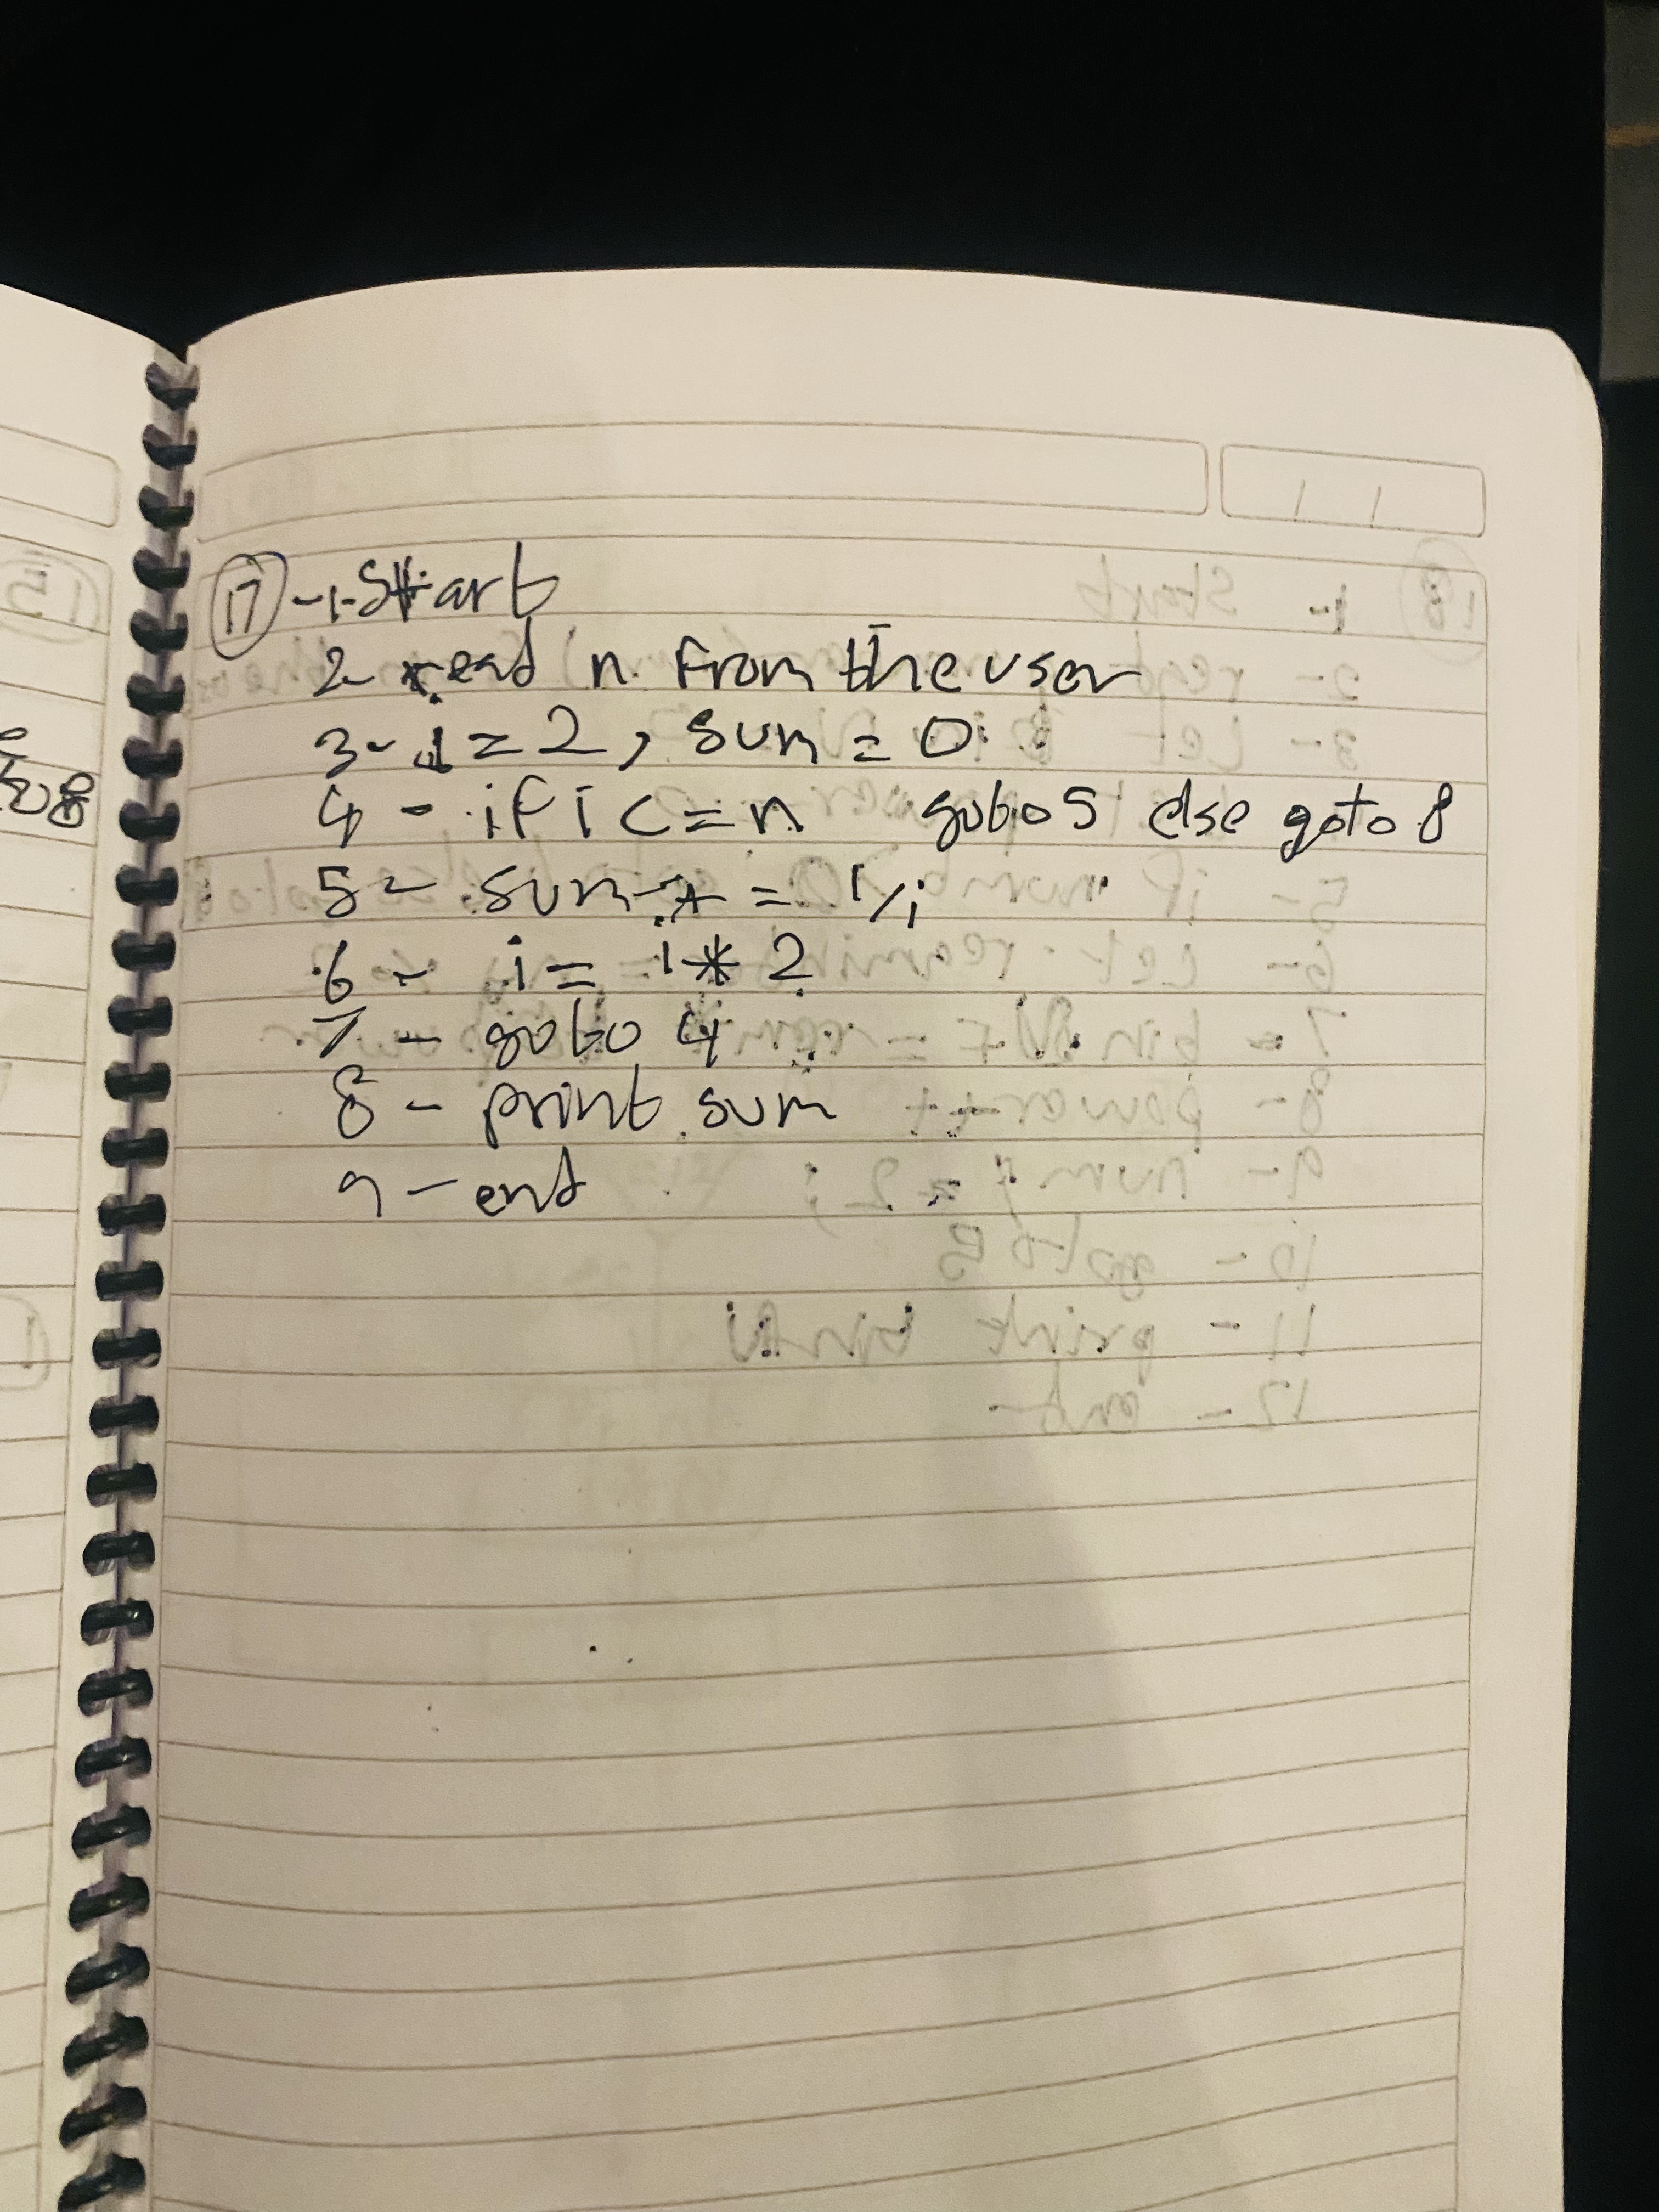 17 -1- Start
2- read n from the user
3- i = 2 , sum = 0
4 - if i <= n goto 5 else goto 8
5- sum + = 1/i
6 - i = i * 2
7 - goto 4
8 - print sum
9 - end